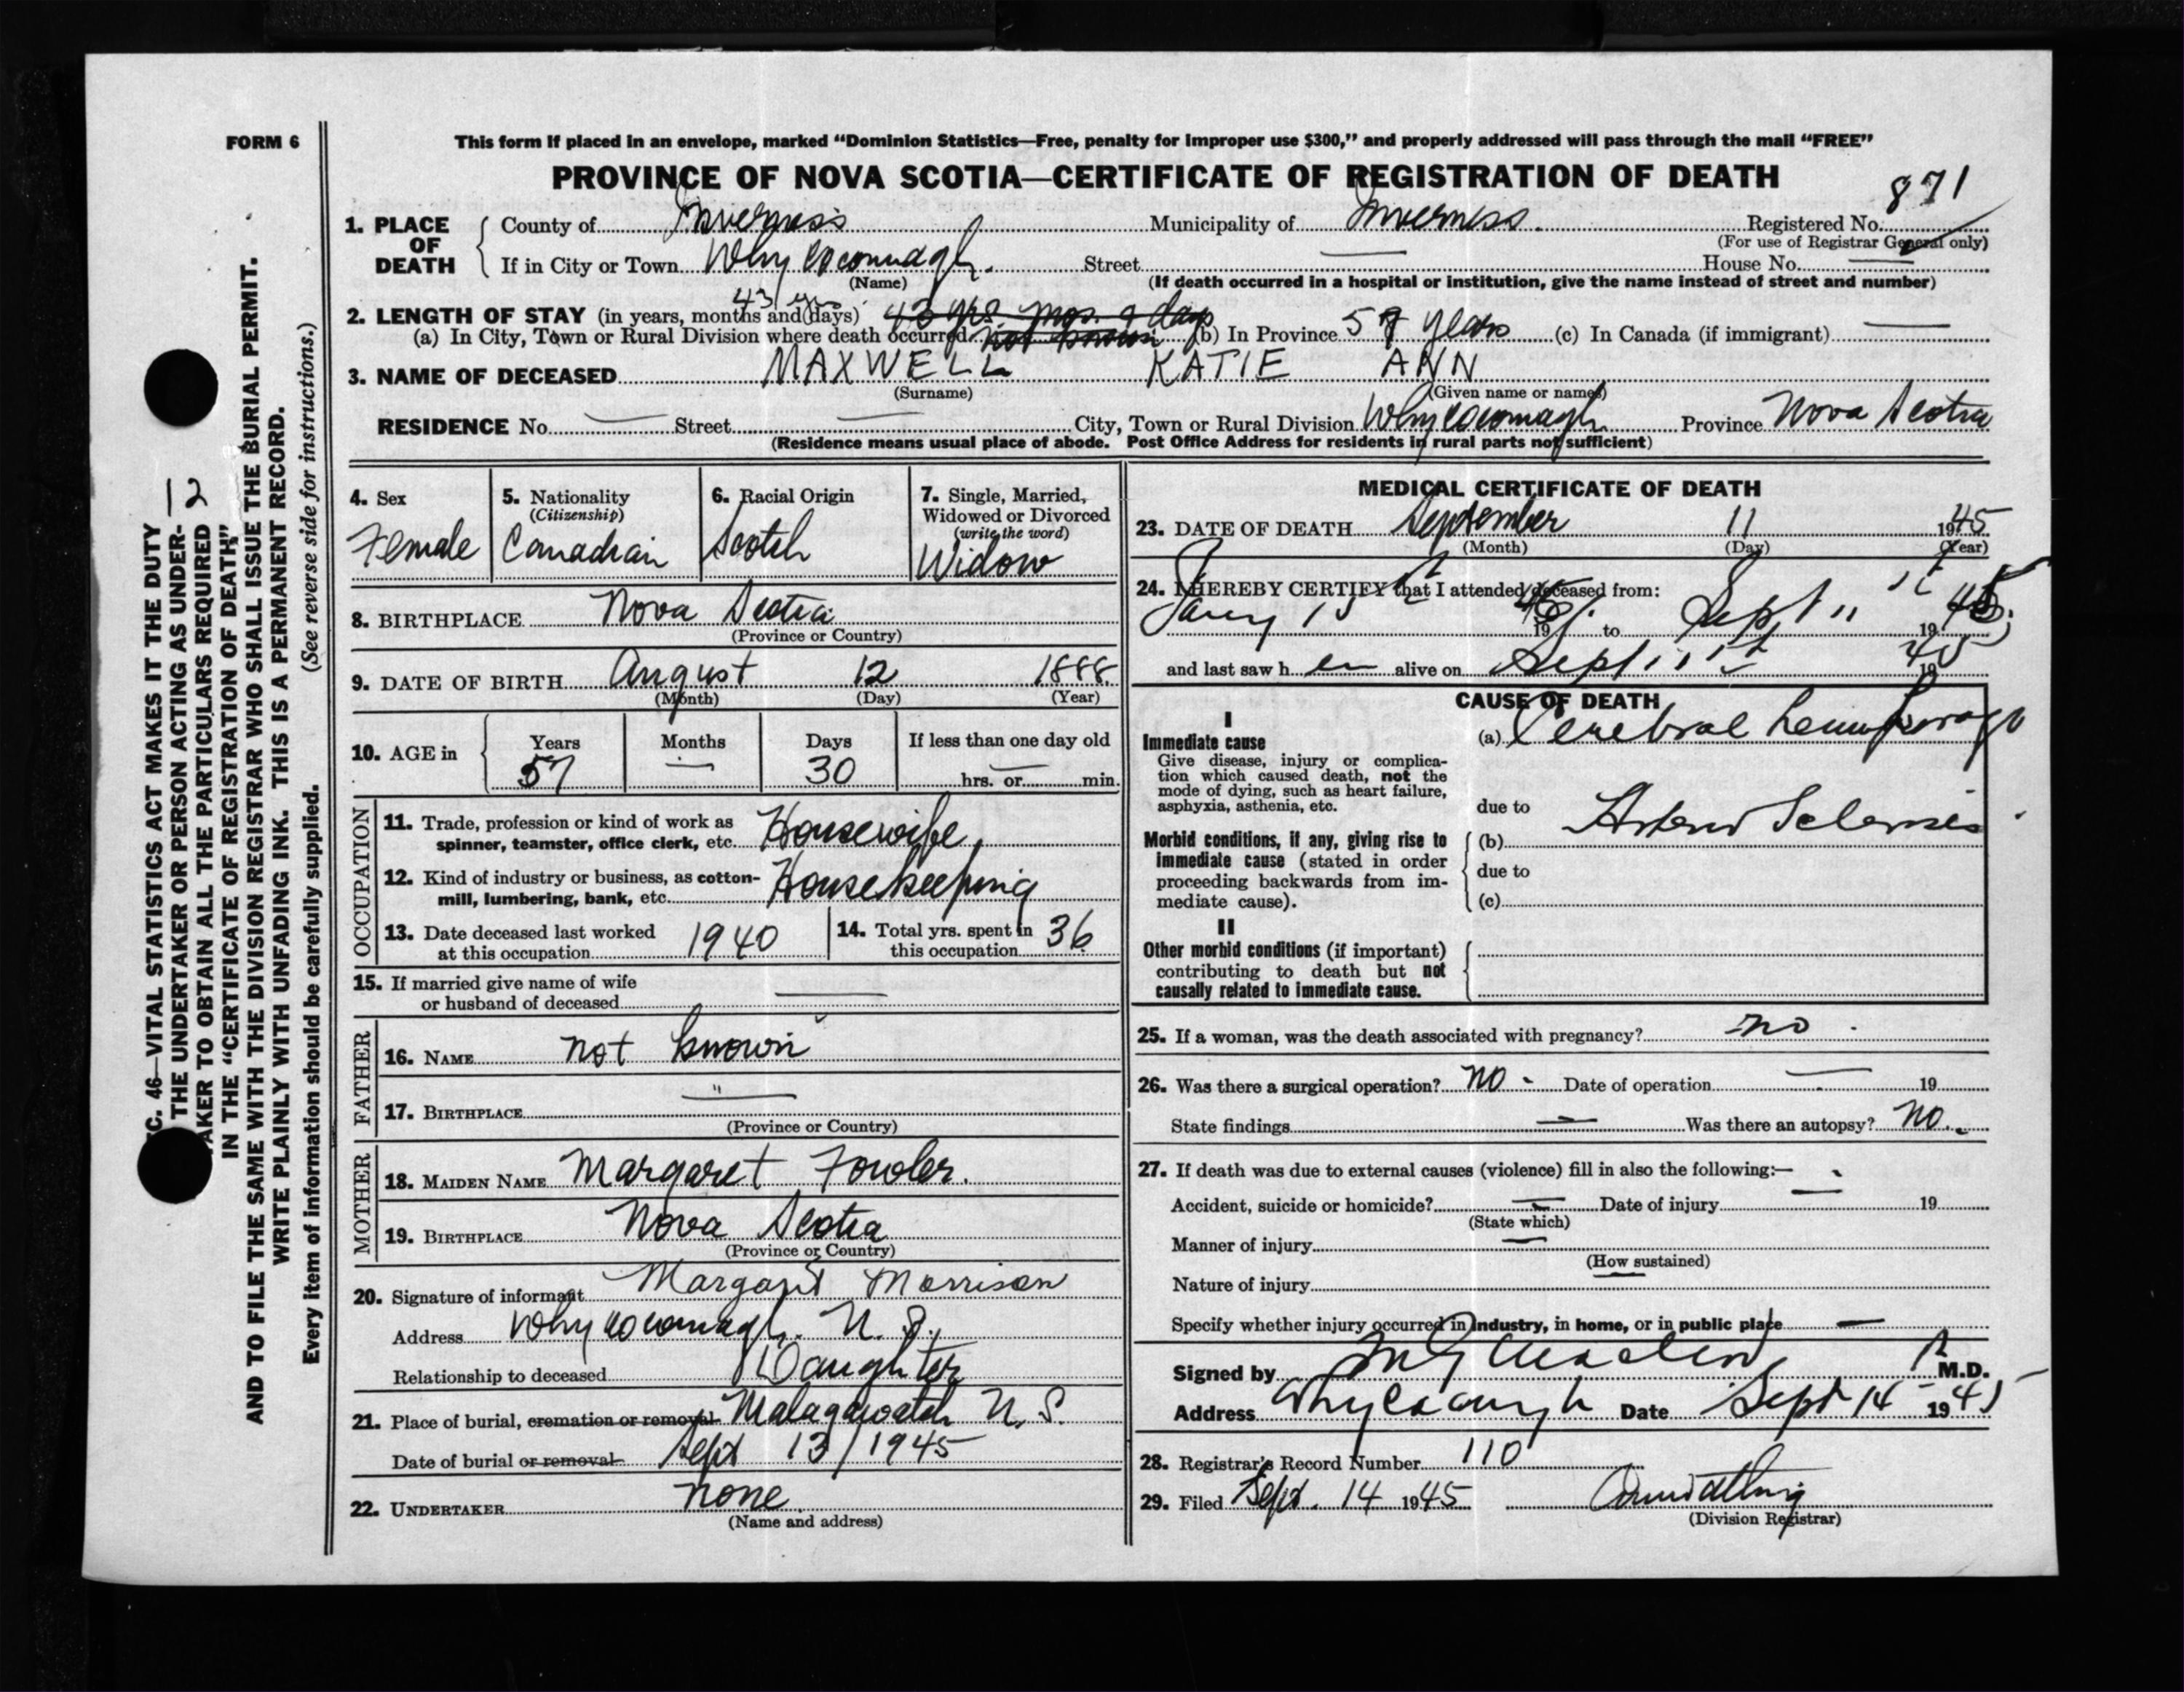 FORM 6
This form if placed in an envelope, marked “Dominion Statistics—Free, penalty for improper use $300,” and properly addressed will pass through the mail “FREE”
PROVINCE OF NOVA SCOTIA—CERTIFICATE OF REGISTRATION OF DEATH
871
1. PLACE OF DEATH County of Inverness Municipality of Inverness. Registered No.
(For use of Registrar General only)
If in City or Town Whycocomagh. Street — House No. —
(Name) (If death occurred in a hospital or institution, give the name instead of street and number)
43 yrs
2. LENGTH OF STAY (in years, months and days) 43 yrs. mos. 9 days
(a) In City, Town or Rural Division where death occurred not known (b) In Province 57 years (c) In Canada (if immigrant) —
3. NAME OF DECEASED MAXWELL KATIE ANN
(Surname) (Given name or names)
RESIDENCE No. — Street — City, Town or Rural Division Whycocomagh Province Nova Scotia
(Residence means usual place of abode. Post Office Address for residents in rural parts not sufficient)
4. Sex Female
5. Nationality (Citizenship) Canadian
6. Racial Origin Scotch
7. Single, Married, Widowed or Divorced (write the word) Widow
8. BIRTHPLACE Nova Scotia
(Province or Country)
9. DATE OF BIRTH August 12 1888
(Month) (Day) (Year)
10. AGE in Years 57 Months — Days 30 If less than one day old — hrs. or min.
OCCUPATION
11. Trade, profession or kind of work as spinner, teamster, office clerk, etc. Housewife
12. Kind of industry or business, as cotton-mill, lumbering, bank, etc. Housekeeping
13. Date deceased last worked at this occupation 1940
14. Total yrs. spent in this occupation 36
15. If married give name of wife or husband of deceased —
FATHER
16. NAME not known
17. BIRTHPLACE "
(Province or Country)
MOTHER
18. MAIDEN NAME Margaret Fowler.
19. BIRTHPLACE Nova Scotia
(Province or Country)
20. Signature of informant Margaret Morrison
Address Whycocomagh. N. S.
Relationship to deceased Daughter
21. Place of burial, cremation or removal Malagawatch N. S.
Date of burial or removal Sept 13/1945
22. UNDERTAKER none
(Name and address)
MEDICAL CERTIFICATE OF DEATH
23. DATE OF DEATH September 11 1945
(Month) (Day) (Year)
24. I HEREBY CERTIFY that I attended deceased from:
Jany 15 19 45 to Sept 11th 19 45
and last saw h er alive on Sept 11th 19 45
CAUSE OF DEATH
I
Immediate cause
Give disease, injury or complication which caused death, not the mode of dying, such as heart failure, asphyxia, asthenia, etc.
(a) Cerebral hemorrhage
due to
Morbid conditions, if any, giving rise to immediate cause (stated in order proceeding backwards from immediate cause).
(b) Arterio Sclerosis
due to
(c)
II
Other morbid conditions (if important) contributing to death but not causally related to immediate cause.
25. If a woman, was the death associated with pregnancy? no
26. Was there a surgical operation? no - Date of operation — 19
State findings — Was there an autopsy? no.
27. If death was due to external causes (violence) fill in also the following:—
Accident, suicide or homicide? — Date of injury — 19
(State which)
Manner of injury —
(How sustained)
Nature of injury —
Specify whether injury occurred in industry, in home, or in public place —
Signed by M.D.
Address Whycocomagh Date Sept 14 1945
28. Registrar's Record Number 110
29. Filed Sept. 14 1945
(Division Registrar)
12
SEC. 46—VITAL STATISTICS ACT MAKES IT THE DUTY
THE UNDERTAKER OR PERSON ACTING AS UNDER-
TAKER TO OBTAIN ALL THE PARTICULARS REQUIRED
IN THE “CERTIFICATE OF REGISTRATION OF DEATH”
AND TO FILE THE SAME WITH THE DIVISION REGISTRAR WHO SHALL ISSUE THE BURIAL PERMIT.
WRITE PLAINLY WITH UNFADING INK. THIS IS A PERMANENT RECORD.
Every item of information should be carefully supplied. (See reverse side for instructions.)